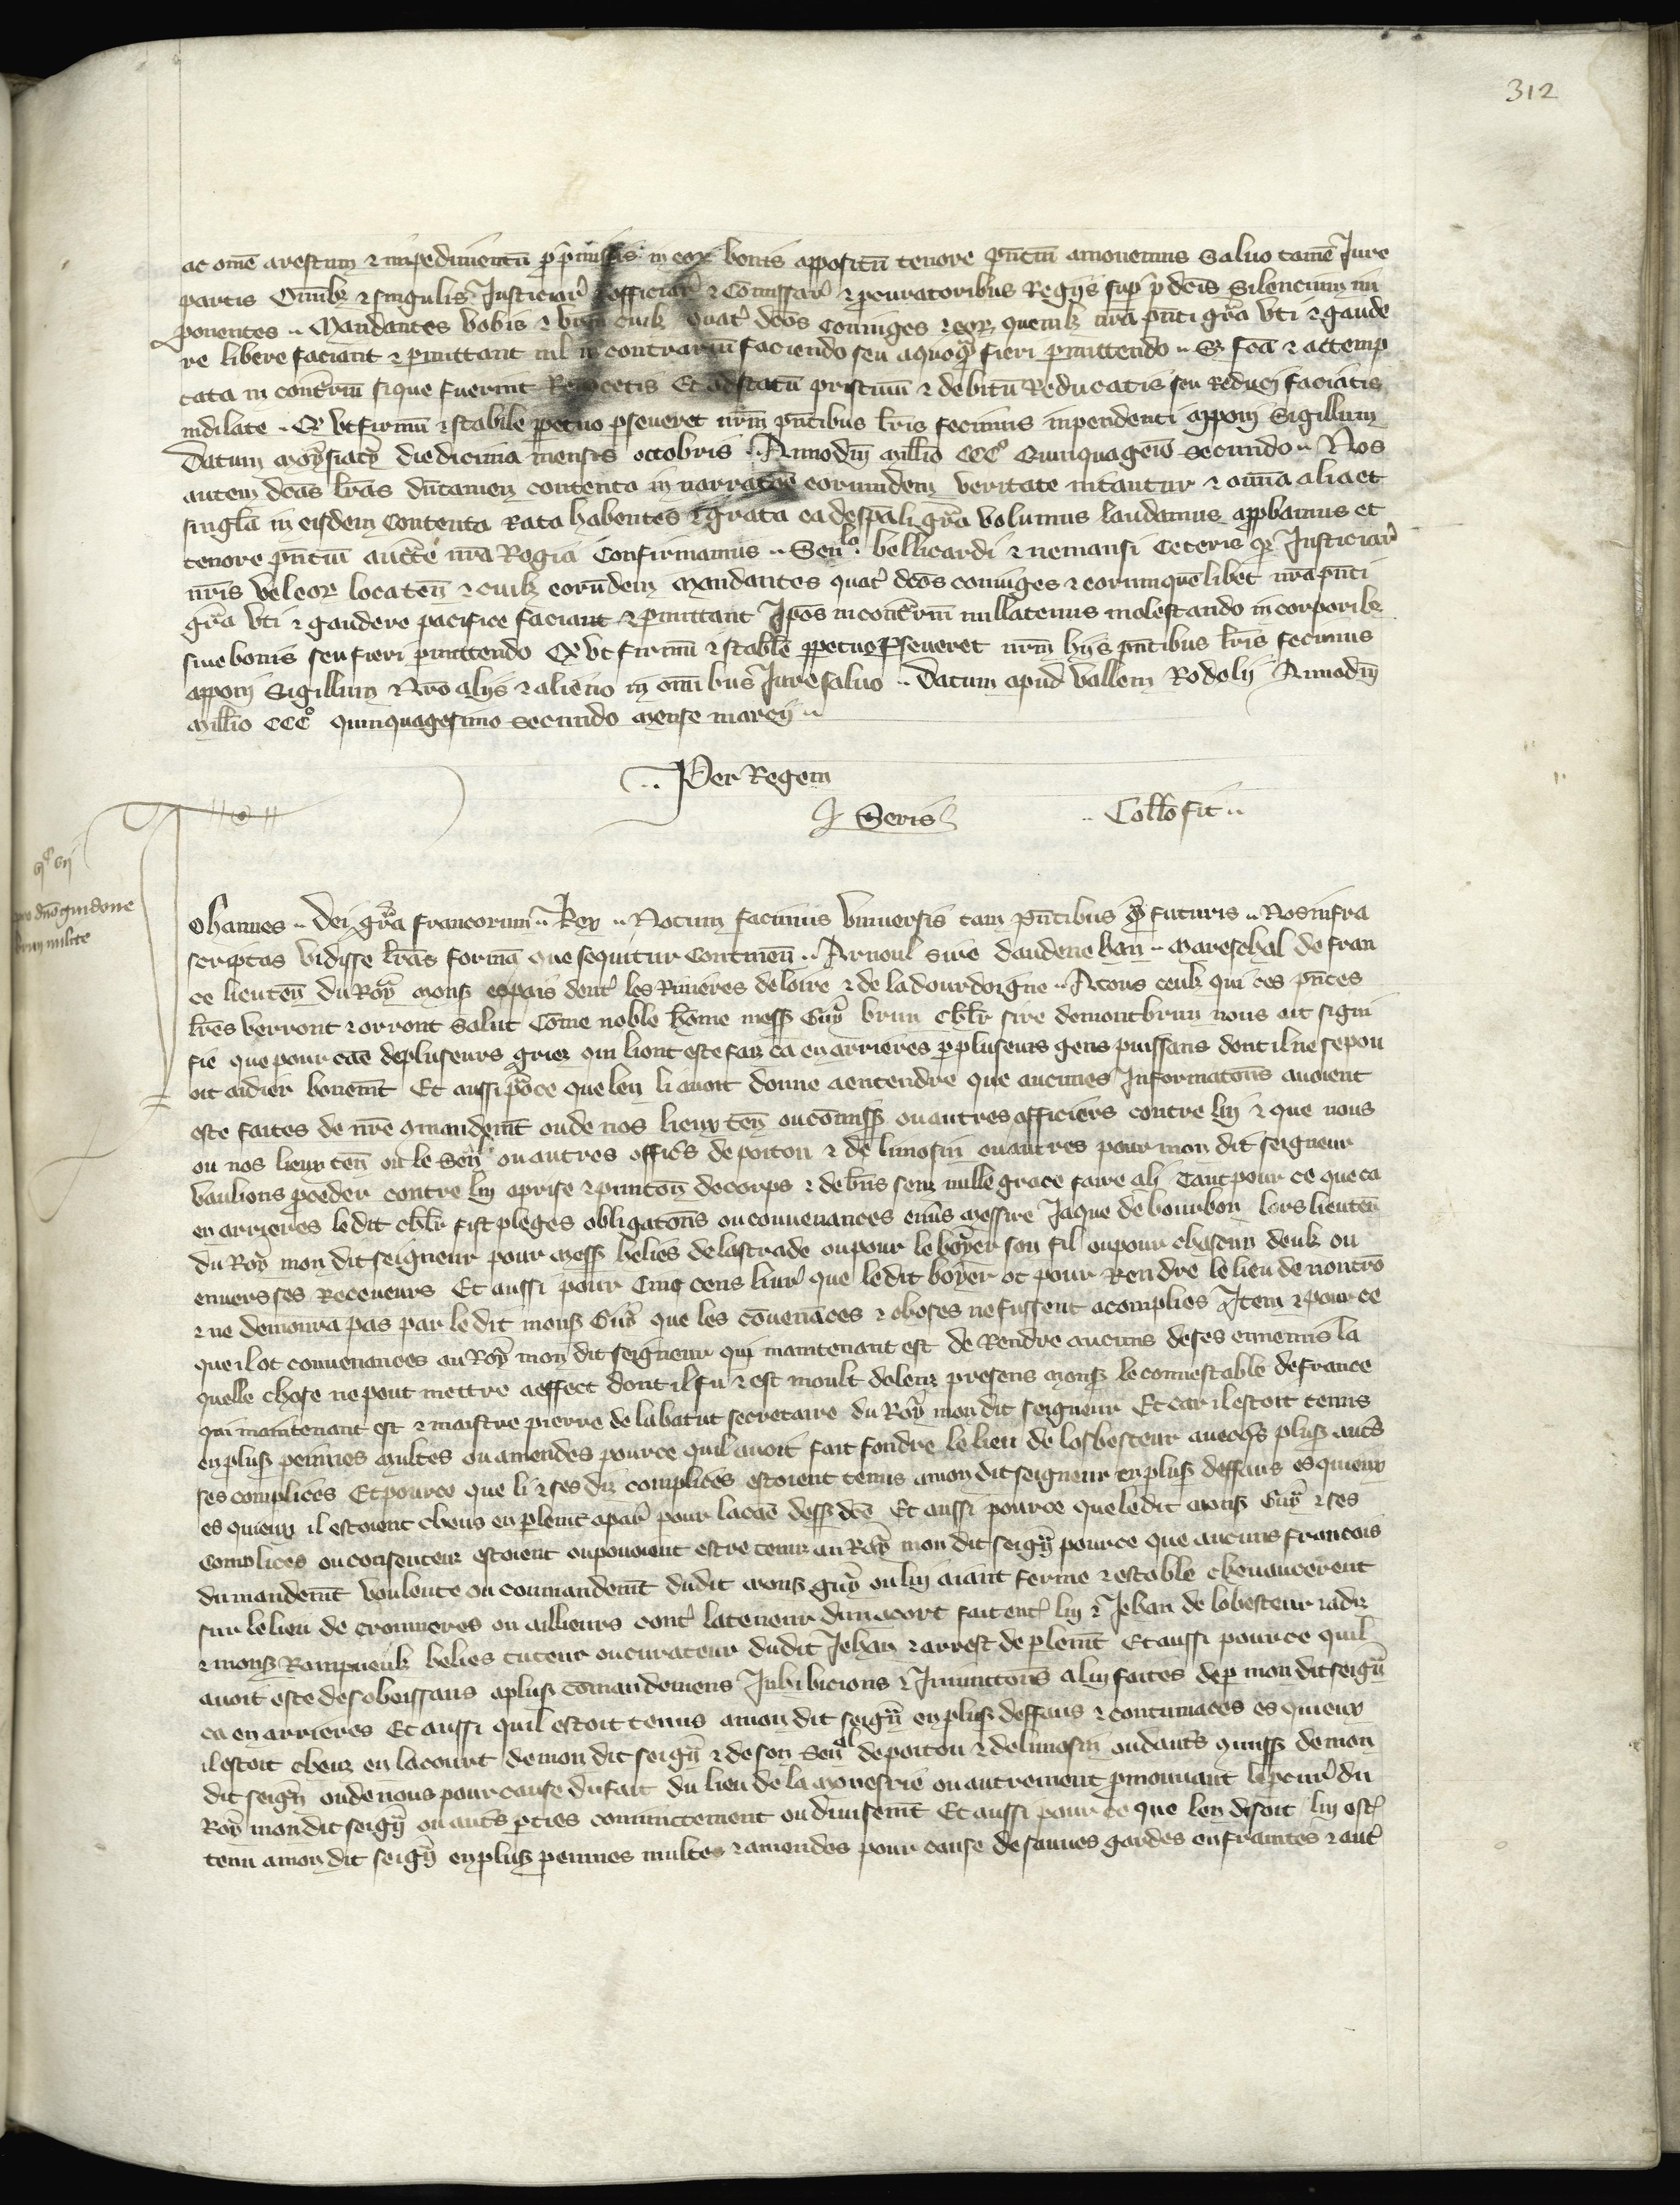 312
ac om̄e arestum ⁊ impedimentū p̄ p̄missis in eoꝝ bonis appositū tenore p̄ntiū amouemus Saluo tamē Jure
partis Om̄ibꝫ ⁊ singulis Justiciar̄ officiar̄ ⁊ Com̄issar̄ ⁊ ꝓcuratoribus Regijs sup̄ p̄dc̄is Silencium im
ponentes .. Mandantes vobis ⁊ vr̄m cuilꝫ quat̄ dc̄os coniuges ⁊ eoꝝ quemlꝫ nr̄a p̄nti gr̄a vti ⁊ gaude
re libere faciant ⁊ p̄mittant nil in contrariū faciendo seu a quoq̄ fieri p̄mittendo .. Sꝫ fc̄a ⁊ attemp
tata in contr̄iū si que fuerint Reuocetis Et ad statū pristinū ⁊ debitū Reducatis seu Reduci faciatis
indilate .. Qᵈ vt firmū ⁊ stabile ꝑpetuo ꝑseueret nr̄m p̄ntibus lr̄is fecimus inpendenti apponi Sigillum
Datum moysiacy die decima mensis octobris .. Anno dn̄i mill̄io CCCº Quinquagēīo secundo .. Nos
autem dc̄as lr̄as dūtamen contenta in narratōe eorumdem veritate nitantur ⁊ om̄ia alia et
singl̄a in eisdem Contenta Rata habentes ⁊ grata ea de sp̄ali gr̄a volumus laudamus approbamus et
tenore p̄ntiū auctē nr̄a Regia Confirmamus .. Senˡᵒ bellicardi ⁊ nemausi Ceteris qꝫ Justiciar̄
nr̄is vel eoꝝ locaten̄ ⁊ cuilꝫ eorūdem Mandantes quat̄ dc̄os coniuges ⁊ eorum quēlibet nr̄a p̄nti
gr̄a vti ⁊ gaudere pacifice faciant ⁊ p̄mittant Ip̄os in contr̄iū nullatenus molestando in corporibꝫ
siue bonis seu fieri p̄mittendo Qᵈ vt firmū ⁊ stabile ꝑpetuo ꝑseueret nr̄m hijs p̄ntibus lr̄is fecimus
apponi Sigillum Nr̄o alijs ⁊ alieno in om̄ibus Jure saluo .. Datum apud vallem Rodolij Anno dn̄i
mill̄io CCCº quinquagesimo secundo mense marcij ..
.. Per Regem
J Seris
.. Coll̄o fit ..
pro dn̄o guidone
brun milite
Johannes .. Dei gr̄a francorum .. Rex .. Notum facimus vniuersis tam p̄ntibus qᵃ̄ futuris .. Nos infra
scriptas vidisse lr̄as formā que sequitur Continen̄ .. Arnoul sire daudenehan .. mareschal de fran
ce lieuten̄ du Roy mons̄ es pais dent̄ les Riuieres de loire ⁊ de la dourdoigne .. A tous ceulx qui ces p̄ntes
lr̄es verront ⁊ orront Salut Cōme noble hōme mess̄ Guy brun chlr̄ sire de montbrun nous ait signi
fie que pour cāe de pluseurs griez qui li ont este faiz ca en arrieres p̄ pluseurs gens puissans dont il ne se pou
oit aidier bonemt̄ Et aussi po᷑ ce que len li auoit donne a entendre que aucunes Informatōns auoient
este faites de nr̄e cōmandemt̄ ou de nos lieux ten̄ ou cōmiss̄ ou autres officiers contre luy ⁊ que nous
ou nos lieux ten̄ ou le Senˡ ou autres offic̄s de poitou ⁊ de limosin ou autres pour mon dit seigneur
vaulions ꝓceder contre luy a prise ⁊ punitōn de corps ⁊ de biēs senz nulle grace faire a li Tant pour ce que ca
en arrieres le dit chlr̄ fist pleges obligatōns ou conuenances enu̇s messire Jaque de bourbon lors lieuten̄
du Roy mon dit seigneur pour mess̄ helies de lastrade ou pour le boyer son fil ou pour chascun deulx ou
enuers ses Receueurs Et aussi pour Cinq cens liur̄ que le dit boyer ot pour Rendre le lieu de nontrō
⁊ ne demoura pas par le dit mons̄ Guy que les cōuenāces ⁊ choses ne fussent acomplies Item ⁊ pour ce
que il ot conuenances au Roy mon dit seigneur qui maintenant est de Rendre aucuns de ses ennemis la
quelle chose ne peut mettre a effect dont il fu ⁊ est moult dolenz presens mons̄ le connestable de france
qui maintenant est ⁊ maistre pierre de labatut secretaire du Roy mon dit seigneur Et car il estoit tenus
en plus̄ peinnes multes ou amendes pour ce quil auoit fait fondre le lieu de losbesteur auecqs̄ plus̄ aut̄s
ses complices Et pour ce que li ⁊ ses diz complices estoient tenus a mon dit seigneur en plus̄ deffaus es quieux
es quieux il estoient cheus en parlemt̄ a par̄ pour la cāe dess̄ dc̄e Et aussi pour ce que le dit mons̄ Guy ⁊ ses
Complices ou consenteur estoient ou pouoient estre tenuz au Roy mon dit seign̄ pour ce que aucuns francois
du mandemt̄ voulente ou cōmandemt̄ du dit mons̄ guy ou luy aiant ferme ⁊ estable cheuaucerent
sur le lieu de cromieres ou aillieurs cont̄ la teneur dun acort fait ent̄ luy ⁊ Jehan de lobesteur iadiz
⁊ mons̄ Rampneulx helies tuteur ou curateur du dit Jehan ⁊ arrest de plemt̄ Et aussi pour ce quil
auoit este desobeissans a plus̄ cōmandemens Inhibicions ⁊ Iniunctiōns a luy faites de p̄ mon dit seign̄
ca en arrieres Et aussi quil estoit tenus a mon dit seign̄ en plus̄ deffaus ⁊ contumaces es quieux
il estoit cheuz en la court de mon dit seign̄ ⁊ de son Senˡ de poitou ⁊ de limosin ou daut̄s cōmiss̄ de mon
dit seign̄ ou de nous pour cause du fait du lieu de la monestrie ou autrement p̄mouuant le ꝓcur̄ du
Roy mon dit seign̄ ou aut̄s p̄ties conioinctement ou diuisemt̄ Et aussi pour ce que len disoit luy est̄
tenu a mon dit seign̄ en plus̄ peinnes multes ⁊ amendes pour cause de sauues gardes enfraintes ⁊ aut̄